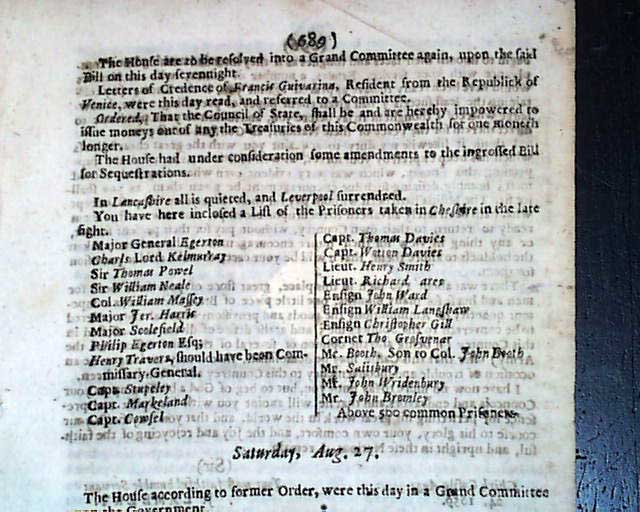 (689)
The House are to be resolved into a Grand Committee again, upon the said
Bill on this day sevennight.
Letters of Credence of Francis Guivarina, Resident from the Republick of
Venice, were this day read, and referred to a Committee.
Ordered, That the Council of State, shall be and are hereby impowered to
issue moneys one of any the Treasuries of this Commonwealth for one moneth
longer.
The House had under consideration some amendments to the ingrossed Bill
for Sequestrations.
In Lancashire all is quieted, and Leverpool surrendred.
You have here inclosed a List of the Prisoners taken in Cheshire in the late
fight.
Major General Egerton
Charls Lord Kelmurray
Sir Thomas Powel
Sir William Neale
Col. William Massey
Major Jer. Harris
Major Scolefield
Philip Egerton Esq;
Henry Travers, should have been Com-
missary General.
Capt. Stupeley
Capt. Markeland
Capt. Cowsel
Capt. Thomas Davies
Capt. Watton Davies
Lieut. Henry Smith
Lieut. Richard
Ensign John Ward
Ensign William Langshaw
Ensign Christopher Gill
Cornet Tho. Grosvenar
Mr. Booth, Son to Col. John Booth
Mr. Salisbury
Mr. John Wridenbury
Mr. John Bromley
Above 500 common Prisoners.
Saturday, Aug. 27.
The House according to former Order, were this day in a Grand Committee
upon the Government